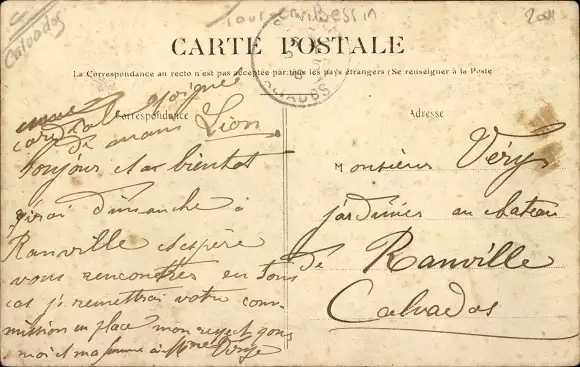 Calvados
Tour-en-Bessin
2004
CARTE POSTALE
La Correspondance au recto n'est pas acceptée par tous les pays étrangers (Se renseigner à la Poste
Correspondance
Adresse
cordiale poignée
de mains Lion
toujours et a bientot
j'irai dimanche à
Ranville et espère
vous rencontrer en tous
cas je remettrai votre com-
mission en place mon respect pour
moi et ma femme à Mme Véry
Monsieur Véry
jardinier au chateau
de Ranville
Calvados